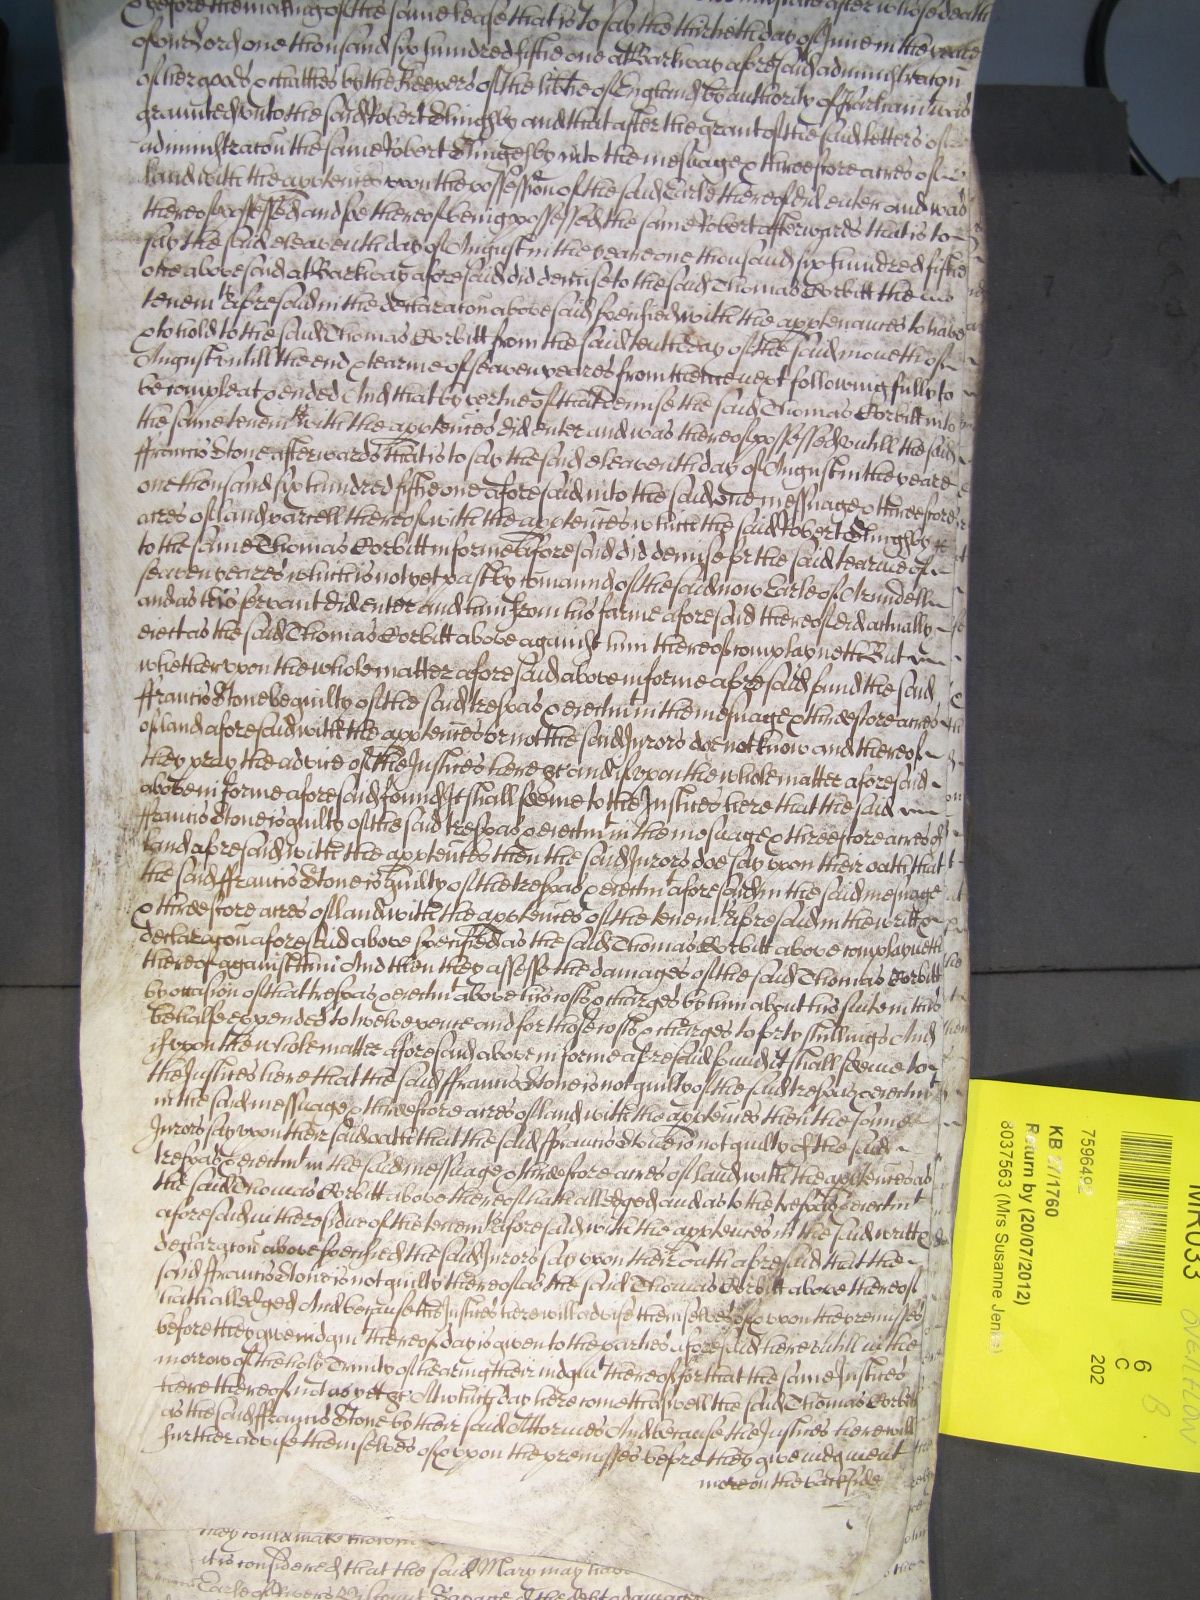 before the making of the same lease that is to say the thirtieth day of June in the yeare
of our Lord one thousand six hundred fiftie one at Barkway aforesaid administracon
of her goods & chattles by the Keepers of the libtie of England by authority of Parliamt was
graunted unto the said Robert Slingsby and that after the grant of the said letters of
administracon the same Robert Slingesby into the messuage & threescore acres of
land with the apptences upon the possession of the said Earle thereof did enter and was
thereof possessed and he thereof being possessed the same Robert afterwards that is to
say the said eleaventh day of August in the yeare one thousand six hundred fiftie
one abovesaid at Barkway aforesaid did demise to the said Thomas Corbitt the
tenemts aforesaid in the declaracon abovesaid specified with the apptenances to have
& to hold to the said Thomas Corbitt from the said tenth day of the said moneth of
August untill the end & tearme of seaven yeares from thence next following fully to
be compleat & ended And that by vertue of that demise the said Thomas Corbitt into
the same tenemts with the apptences did enter and was thereof possessed untill the said
ffrancis Stone afterwards that is to say the said eleaventh day of August in the yeare
one thousand six hundred fiftie one aforesaid into the said one messuage & threescore
acres of land parcell thereof with the apptences which the said Robert Slingsby
to the same Thomas Corbitt in forme aforesaid did demise for the said tearme of
seaven yeares which is not yet past by comaund of the said now Earle of Arundell
and as his servant did enter and him from his farme aforesaid thereof did actually
eiect as the said Thomas Corbitt above against him thereof complayneth But
whether upon the whole matter aforesaid above in forme aforesaid found the said
ffrancis Stone be guilty of the said trespas & eiectmt in the messuage & threescore acres
of land aforesaid with the apptences or not the said Jurors doe not know and thereof
they pray the advice of the Justices here &c and if upon the whole matter aforesaid
above in forme aforesaid found It shall seeme to the Justices here that the said
ffrancis Stone is guilty of the said trespas & eiectmt in the messuage & threescore acres of
land aforesaid with the apptences then the said Jurors doe say upon their oath that
the said ffrancis Stone is Guilty of the trespas & eiectmt aforesaid in the said messuage
& threescore acres of land with the apptences of the tenemts aforesaid in the writt &
declaracon aforesaid above specified as the said Thomas Corbitt above complayneth
thereof against him And then they assesse the damages of the said Thomas Corbitt
by occasion of that trespas & eiectmt above his costs & charges by him about his suite in this
behalfe expended to twelve pence and for those costs & charges to forty shillings And
if upon the whole matter aforesaid above in forme aforesaid found it shall seeme to
the Justices here that the said ffrancis Stone is not guilty of the said trespas & eiectmt
in the said messuage & threescore acres of land with the apptences then the same
Jurors say upon their said oath that the said ffrancis Stone is not guilty of the said
trespas & eiectmt in the said messuage & threescore acres of land with the apptences as
the said Thomas Corbitt above thereof hath alledged and as to the trespas & eiectmt
aforesaid in the residue of the tenemts aforesaid with the apptences in the said writt &
declaracon above specified the said Jurors say upon their oath aforesaid that the
said ffrancis Stone is not guilty thereof as the said Thomas Corbitt above thereof
hath alledged And because the Justices here will advise themselves of & upon the premisses
before they give iudgmt thereof day is given to the parties aforesaid here untill in the
morrow of the holy Trinity of hearing their iudgmt thereof for that the same Justices
here thereof not as yet &c At which day here cometh aswell the said Thomas Corbitt
as the said ffrancis Stone by their said Attornies And because the Justices here will
further advise themselves of & upon the premisses before they give iudgment
more on the backside
they could make knowne
it is considered that the said Mary may have
MR033
6
C
202
7596492
KB 27/1760
Return by (20/07/2012)
8037563 (Mrs Susanne Jen